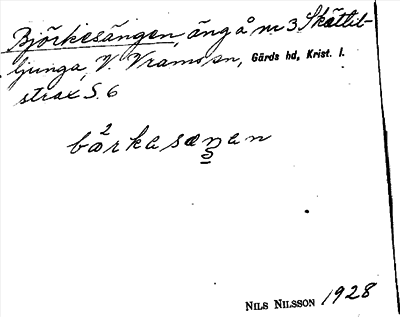 Björkesängen, äng å nr 3 Skättil-
ljunga, V. Vrams sn, Gärds hd, Krist. l.
strax S. 6
2
bærkasæŋan
NILS NILSSON 1928